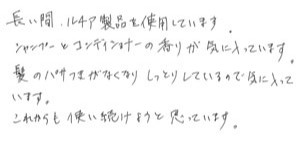 長い間、ルチア製品を使用しています。
シャンプーとコンディショナーの香りが気に入っています。
髪のパサつきがなくなりしっとりしているので気に入って
います。
これからも使い続けようと思っています。